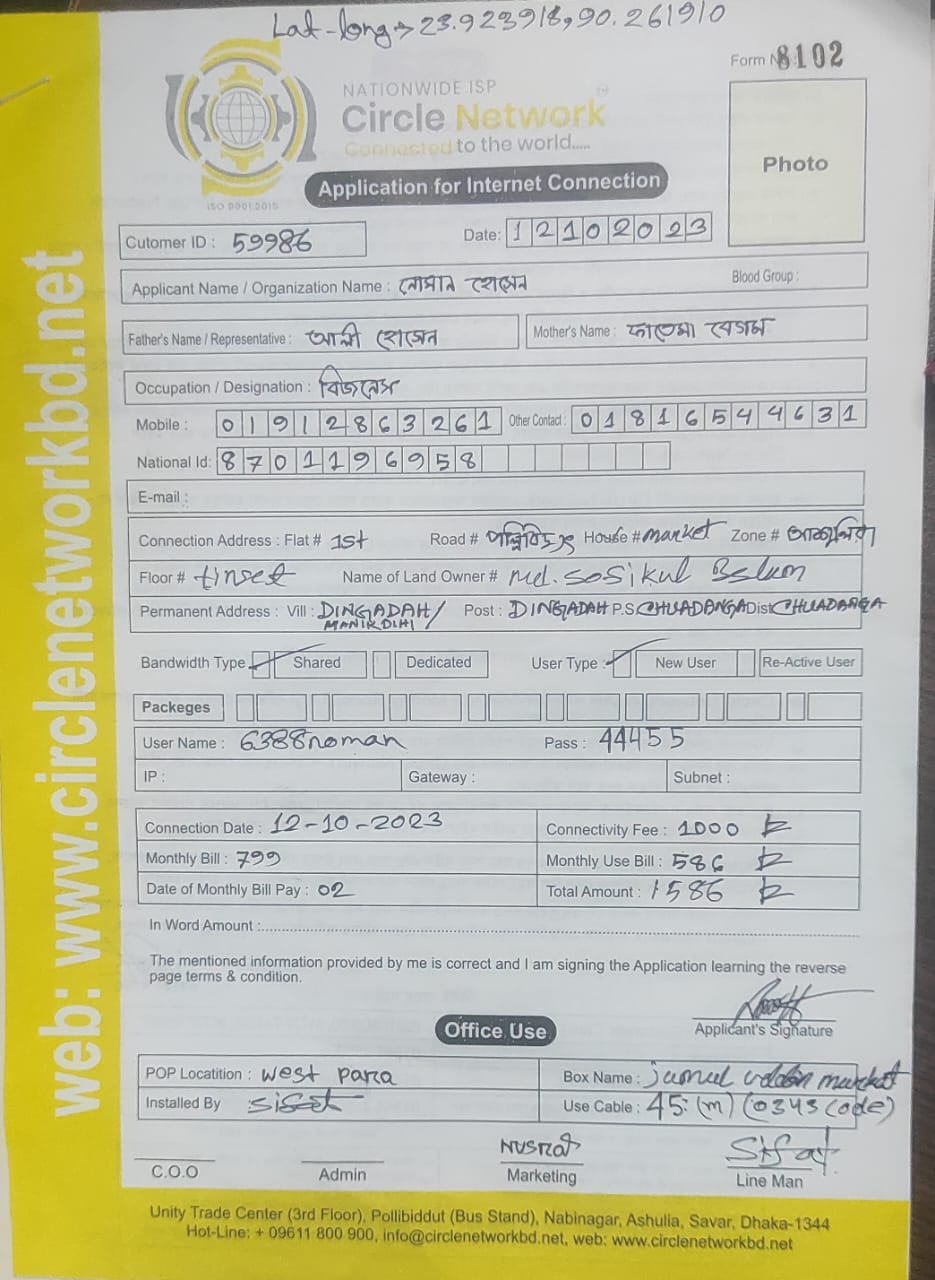 Lat-long → 23.923918,90.261910
Form No 8102
NATIONWIDE ISP
Circle Network
Connected to the world.....
ISO 9001:2015
Application for Internet Connection
Photo
Cutomer ID : 59986
Date: 12102023
Applicant Name / Organization Name : নোমান হোসেন
Blood Group :
Father's Name / Representative : আলী হোসেন
Mother's Name : ফাতেমা বেগম
Occupation / Designation : বিজনেস
Mobile : 01912863261 Other Contact : 01816544631
National Id: 8701196958
E-mail :
Connection Address : Flat # 1st Road # পল্লিবিদ্যুৎ House # market Zone # আশুলিয়া
Floor # tinset Name of Land Owner # Md. Sosikul Bslam
Permanent Address : Vill : DINGADAH/ MANIKDIHI Post : DINGADAH P.S CHUADANGA Dist CHUADANGA
Bandwidth Type Shared Dedicated User Type : New User Re-Active User
Packeges
User Name : 6388noman Pass : 44455
IP : Gateway : Subnet :
Connection Date : 12-10-2023 Connectivity Fee : 1000
Monthly Bill : 799 Monthly Use Bill : 586
Date of Monthly Bill Pay : 02 Total Amount : 1586
In Word Amount :
The mentioned information provided by me is correct and I am signing the Application learning the reverse
page terms & condition.
Applicant's Signature
Office Use
POP Locatition : West para Box Name : jamal uddin market
Installed By Sifat Use Cable : 45 (m) (0343 code)
C.O.O Admin
NUSRAT
Marketing
Sifat
Line Man
Unity Trade Center (3rd Floor), Pollibiddut (Bus Stand), Nabinagar, Ashulia, Savar, Dhaka-1344
Hot-Line: + 09611 800 900, info@circlenetworkbd.net, web: www.circlenetworkbd.net
web: www.circlenetworkbd.net